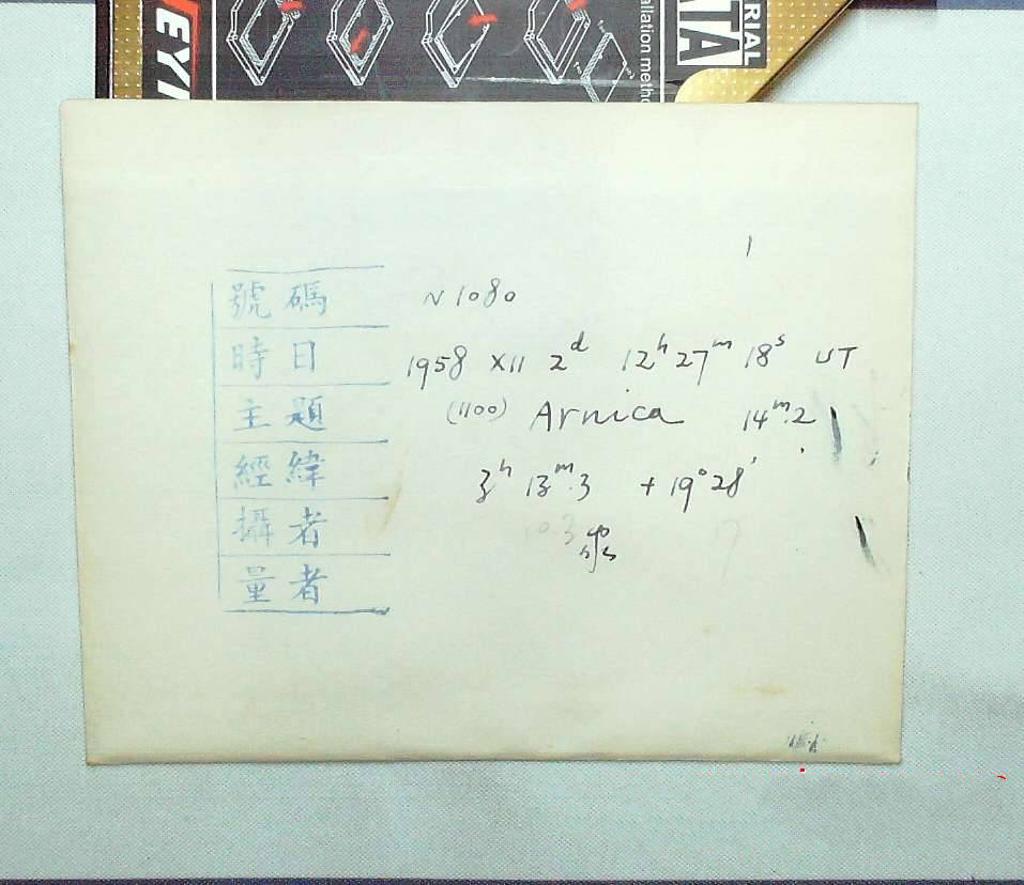 RIAL
ATA
allation metho
EYI
1
號碼 N 1080
時日 1958 XII 2ᵈ 12ʰ 27ᵐ 18ˢ UT
主題 (1100) Arnica 14ᵐ.2
經緯 3ʰ 13ᵐ.3 + 19°28'
攝者
量者